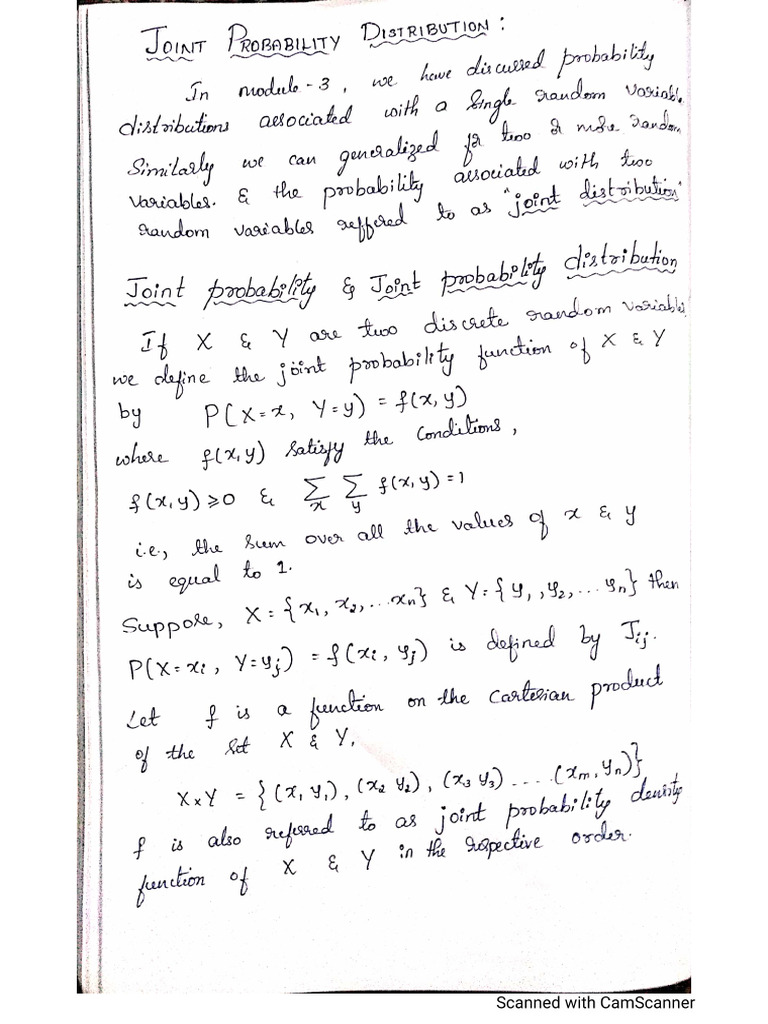 JOINT PROBABILITY DISTRIBUTION:
In module-3, we have discussed probability
distributions associated with a Single random variable
Similarly we can generalized for two & more random
variables. & the probability associated with two
random variables reffered to as "joint distribution"
Joint probability & Joint probability distribution
If X & Y are two discrete random variables
we define the joint probability function of X & Y
by P(X=x, Y=y) = f(x,y)
where f(x,y) satisfy the conditions,
f(x,y) ≥ 0 & ∑x ∑y f(x,y) = 1
i.e., the sum over all the values of x & y
is equal to 1.
Suppose, X = {x₁, x₂, ... xₙ} & Y = {y₁, y₂, ... yₙ} then
P(X=xᵢ, Y=yⱼ) = f(xᵢ, yⱼ) is defined by Jᵢⱼ.
Let f is a function on the Cartesian product
of the set X & Y,
X×Y = {(x₁ y₁), (x₂ y₂), (x₃ y₃) .... (xₘ, yₙ)}
f is also referred to as joint probability density
function of X & Y in the rspective order.
Scanned with CamScanner